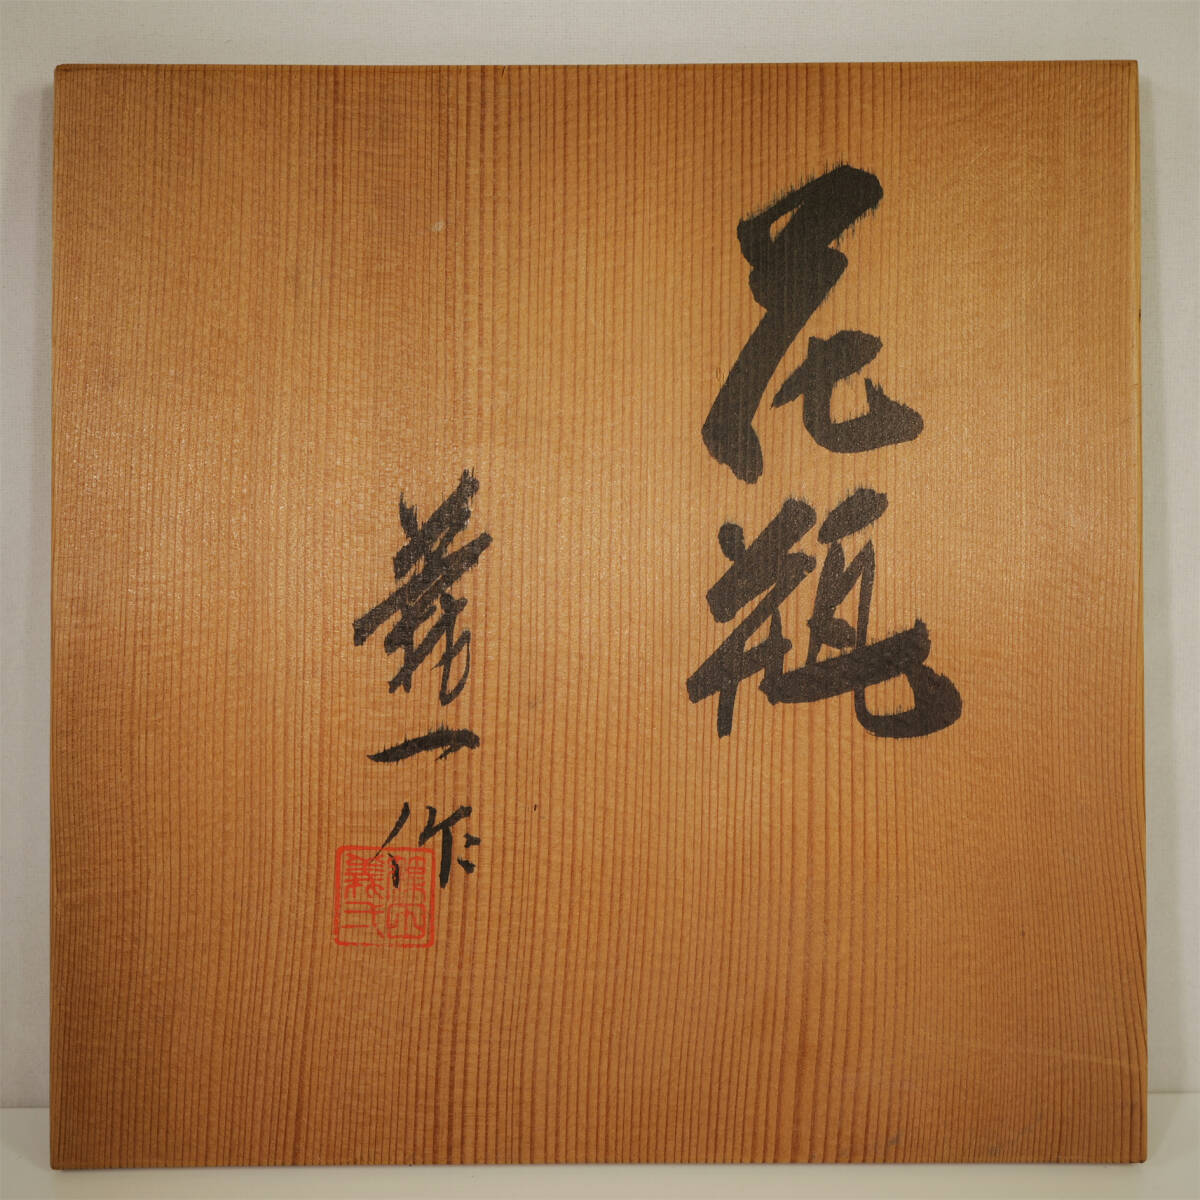 花瓶
義一作